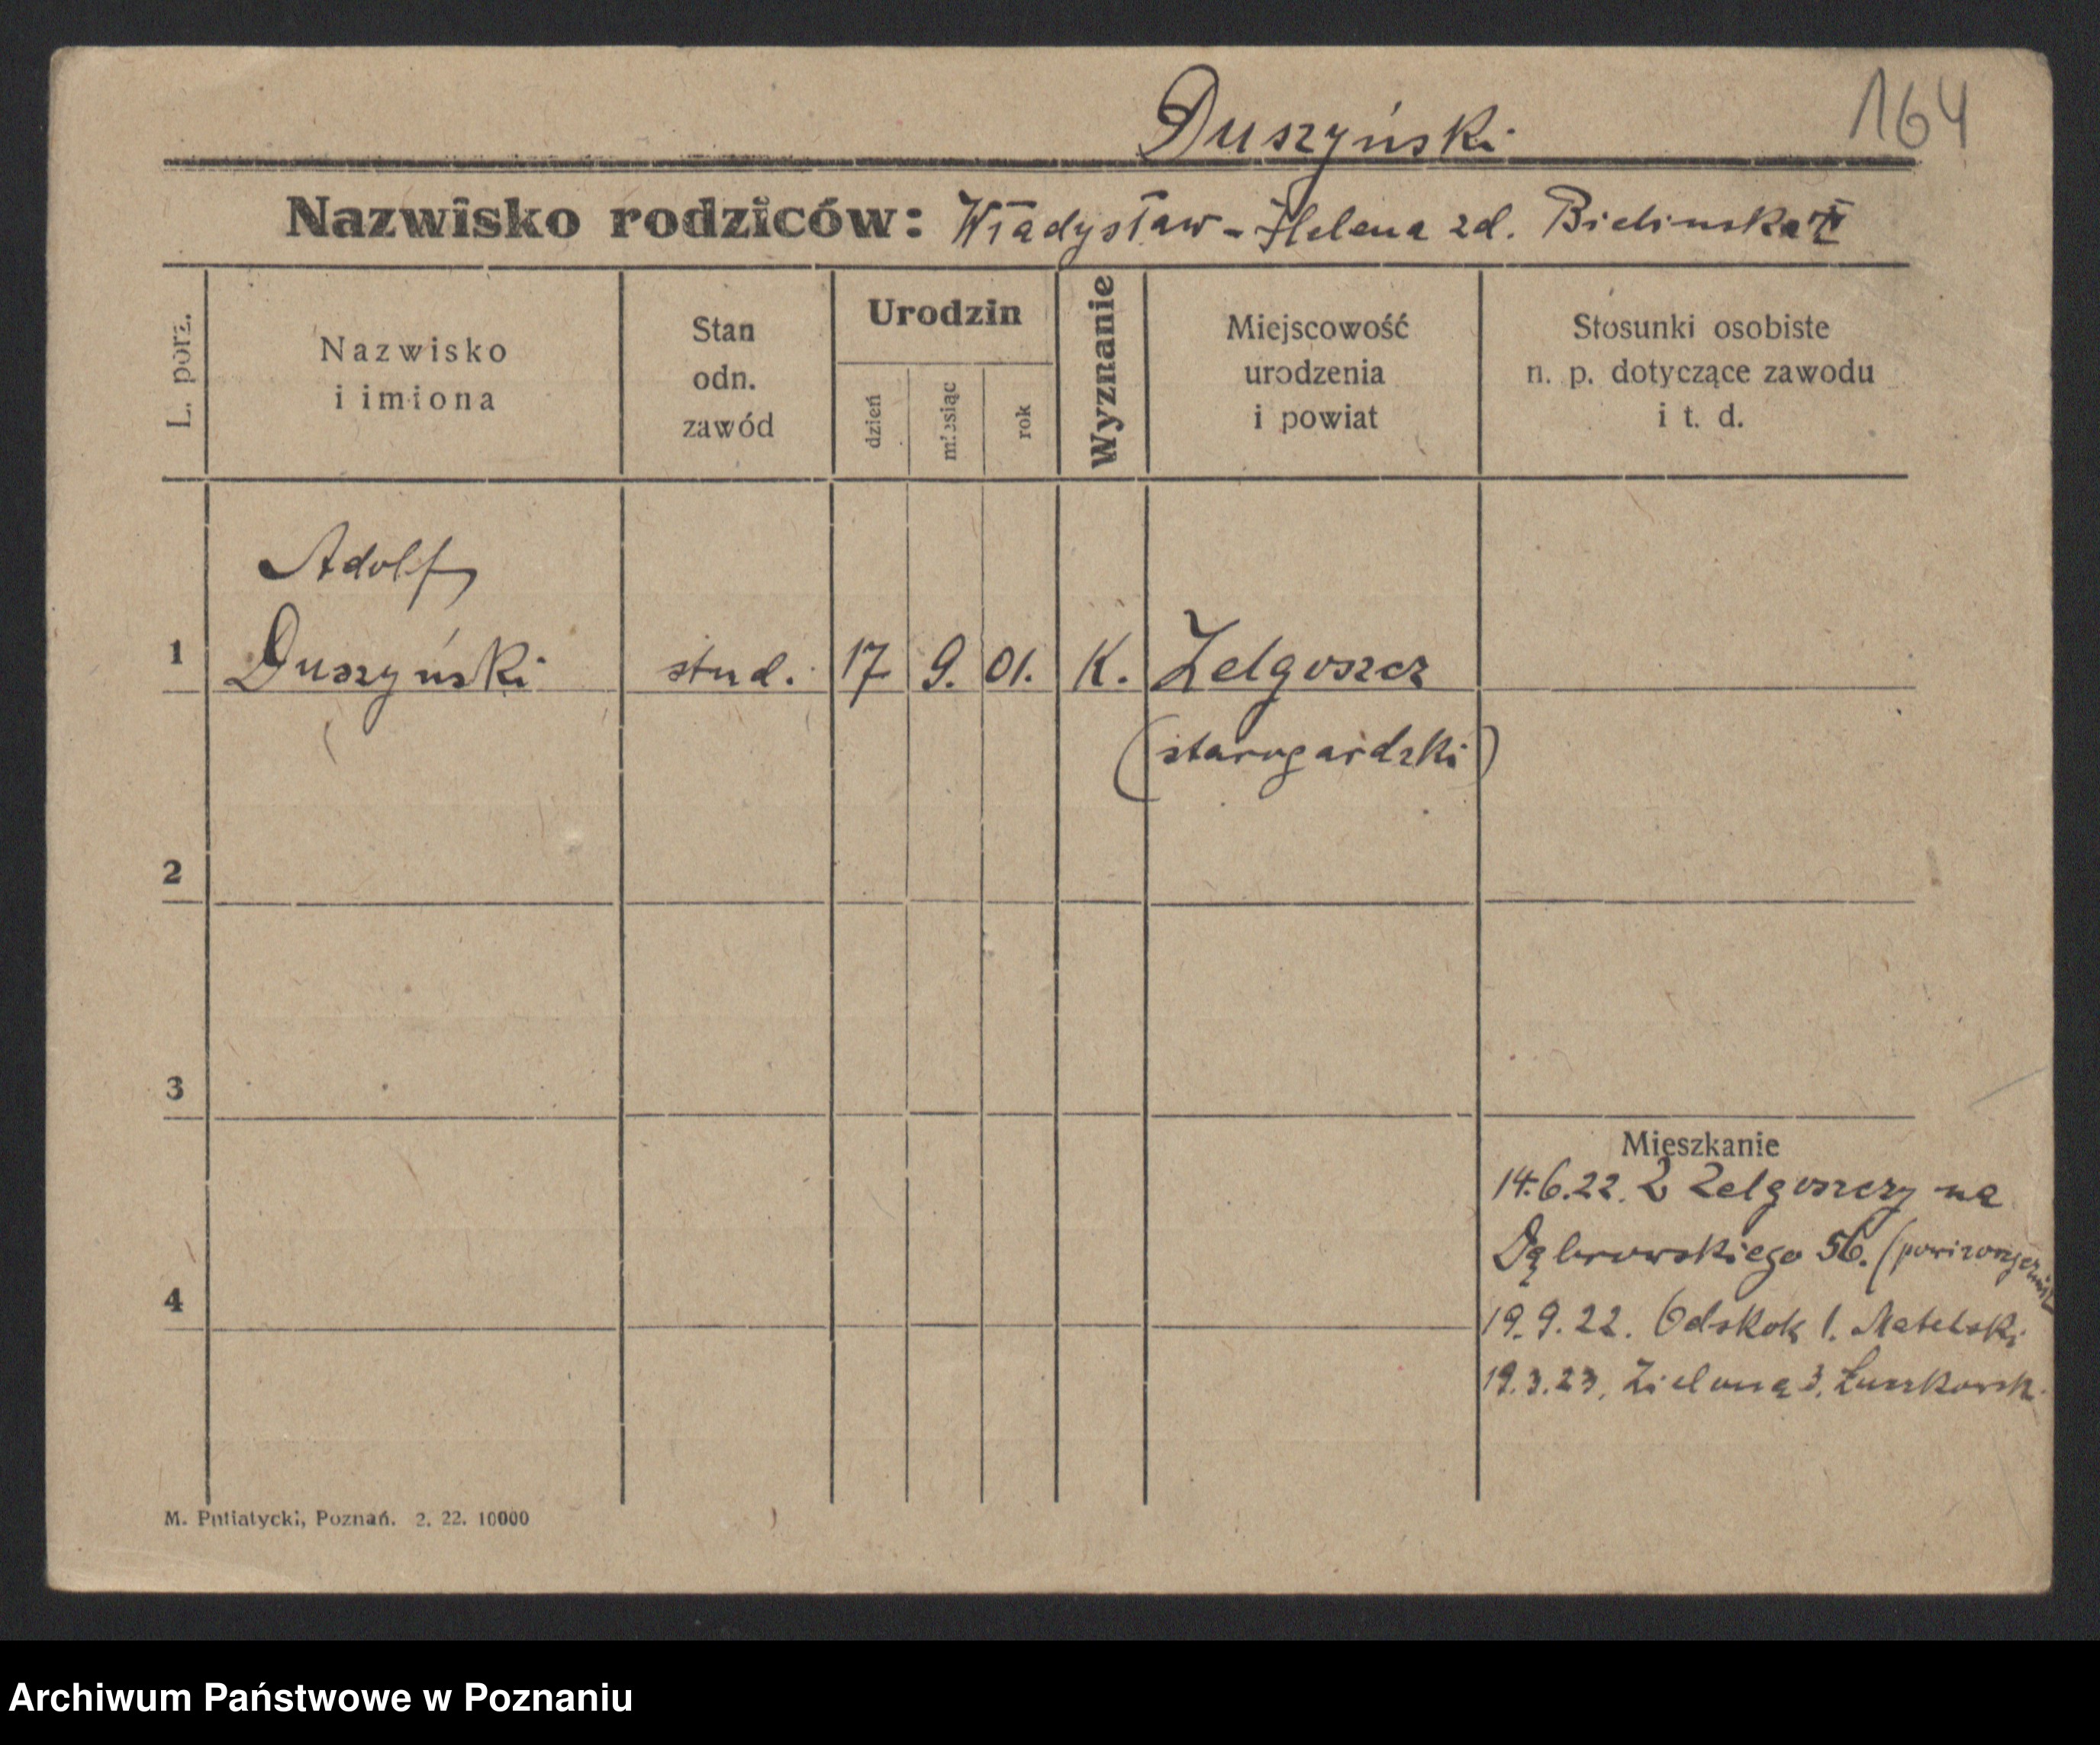 Duszyński
164
Nazwisko rodziców: Władysław - Helena zd. Bielinska
L. porz.
Nazwisko
i imiona
Stan
odn.
zawód
Urodzin
dzień
miesiąc
rok
Wyznanie
Miejscowość
urodzenia
i powiat
Stosunki osobiste
n. p. dotyczące zawodu
i t. d.
Adolf
1 Duszyński stud. 17 9. 01. K. Zelgoszcz
(starogardzki)
2
3
Mieszkanie
14.6.22. Z Zelgoszczy na
Dąbrowskiego 56.
4
19.9.22. Odskok 1. Matelski
19.3.23. Zielona 3.
M. Putiatycki, Poznań. 2. 22. 10000
Archiwum Państwowe w Poznaniu